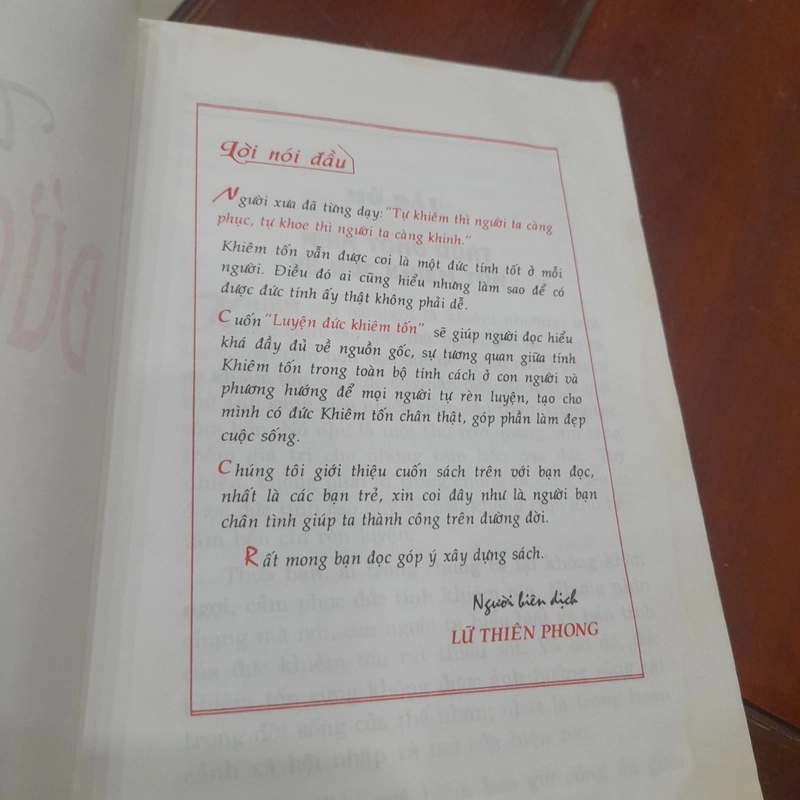 Lời nói đầu
Người xưa đã từng dạy: "Tự khiêm thì người ta càng
phục, tự khoe thì người ta càng khinh."
Khiêm tốn vẫn được coi là một đức tính tốt ở mỗi
người. Điều đó ai cũng hiểu nhưng làm sao để có
được đức tính ấy thật không phải dễ.
Cuốn "Luyện đức khiêm tốn" sẽ giúp người đọc hiểu
khá đầy đủ về nguồn gốc, sự tương quan giữa tính
Khiêm tốn trong toàn bộ tính cách ở con người và
phương hướng để mọi người tự rèn luyện, tạo cho
mình có đức Khiêm tốn chân thật, góp phần làm đẹp
cuộc sống.
Chúng tôi giới thiệu cuốn sách trên với bạn đọc,
nhất là các bạn trẻ, xin coi đây như là người bạn
chân tình giúp ta thành công trên đường đời.
Rất mong bạn đọc góp ý xây dựng sách.
Người biên dịch
LỮ THIÊN PHONG